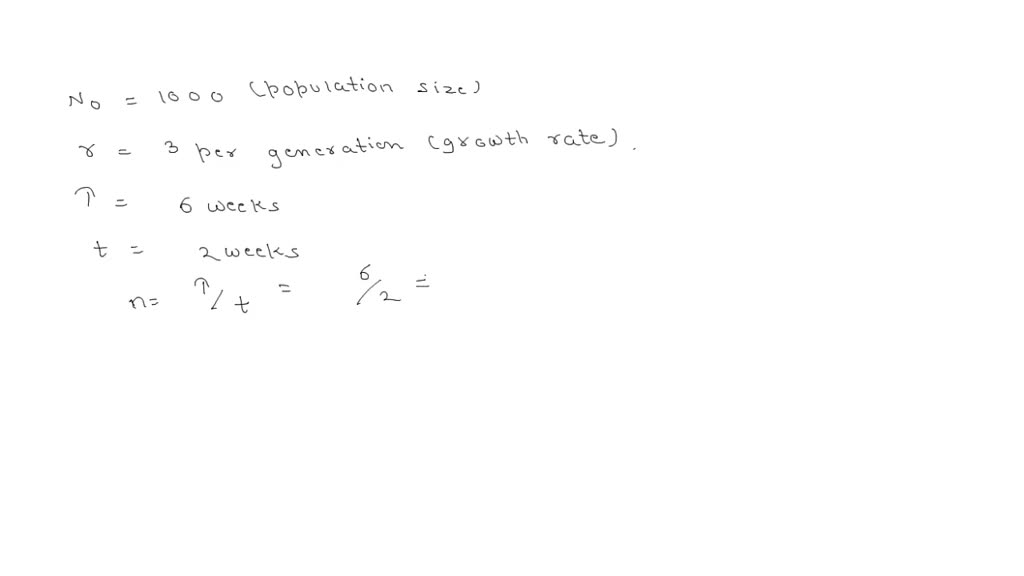 N₀ = 1000 (population size)
r = 3 per generation (growth rate).
T = 6 weeks
t = 2 weeks
n= T/t = 6/2 =